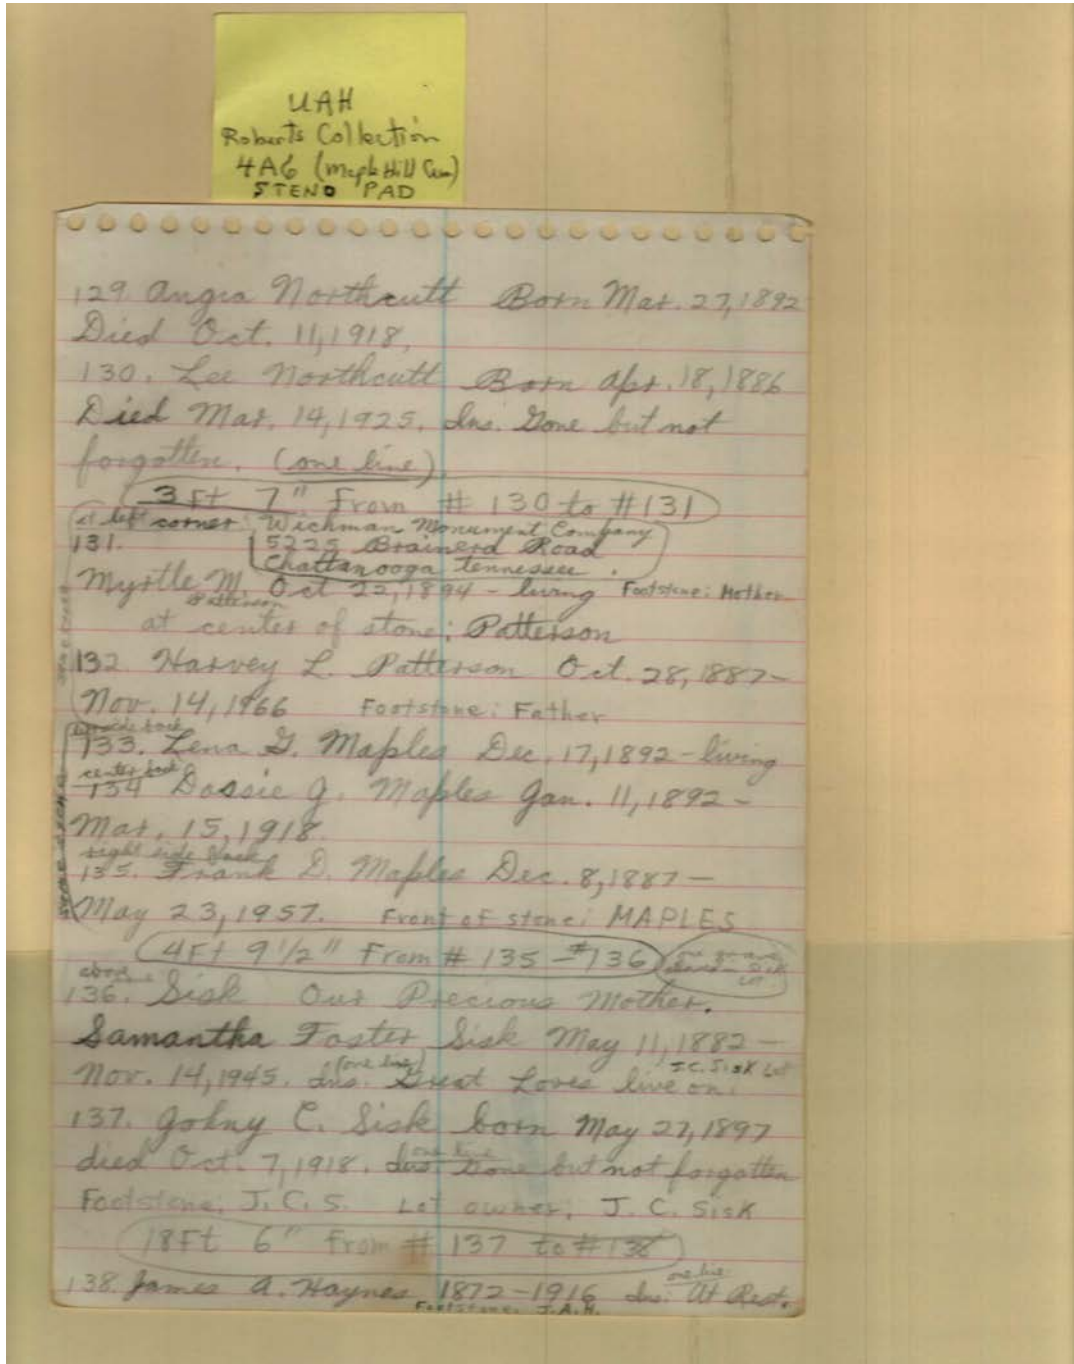 UAH
Roberts Collection
4A6 (Maple Hill Cem)
STENO PAD
129. Angia Northcutt Born Mar. 27, 1892
Died Oct. 11, 1918.
130. Lee Northcutt Born Apr. 18, 1886
Died Mar. 14, 1925. Ins. Gone but not
forgotten. (one line)
3 Ft 7" From # 130 to #131
at left corner: Wichman Monument Company
131. 5225 Brainerd Road
Chattanooga Tennessee.
Myrtle M. Oct 22, 1894 - living Footstone: Mother
Patterson
at center of stone: Patterson
132 Harvey L. Patterson Oct. 28, 1887-
Nov. 14, 1966 Footstone: Father
back
133. Lena G. Maples Dec. 17, 1892 - living
center back
134 Dossie J. Maples Jan. 11, 1892 -
Mar. 15, 1918
right side back
135. Frank D. Maples Dec. 8, 1887 -
May 23, 1957. Front of stone: MAPLES
4Ft 9 1/2" From # 135 - #136 Sisk
Lot
above:
136. Sisk Our Precious Mother.
Samantha Foster Sisk May 11, 1882 -
(one line) J.C. Sisk Lot
Nov. 14, 1945. Ins. Great Loves live on.
137. Johny C. Sisk born May 27, 1897
one line
died Oct. 7, 1918. Ins. Gone but not forgotten
Footstone: J.C.S. Lot owner: J. C. Sisk
18Ft 6" From # 137 to #138
one line
138. James A. Haynes 1872-1916 Ins: At Rest.
Footstone: J.A.H.